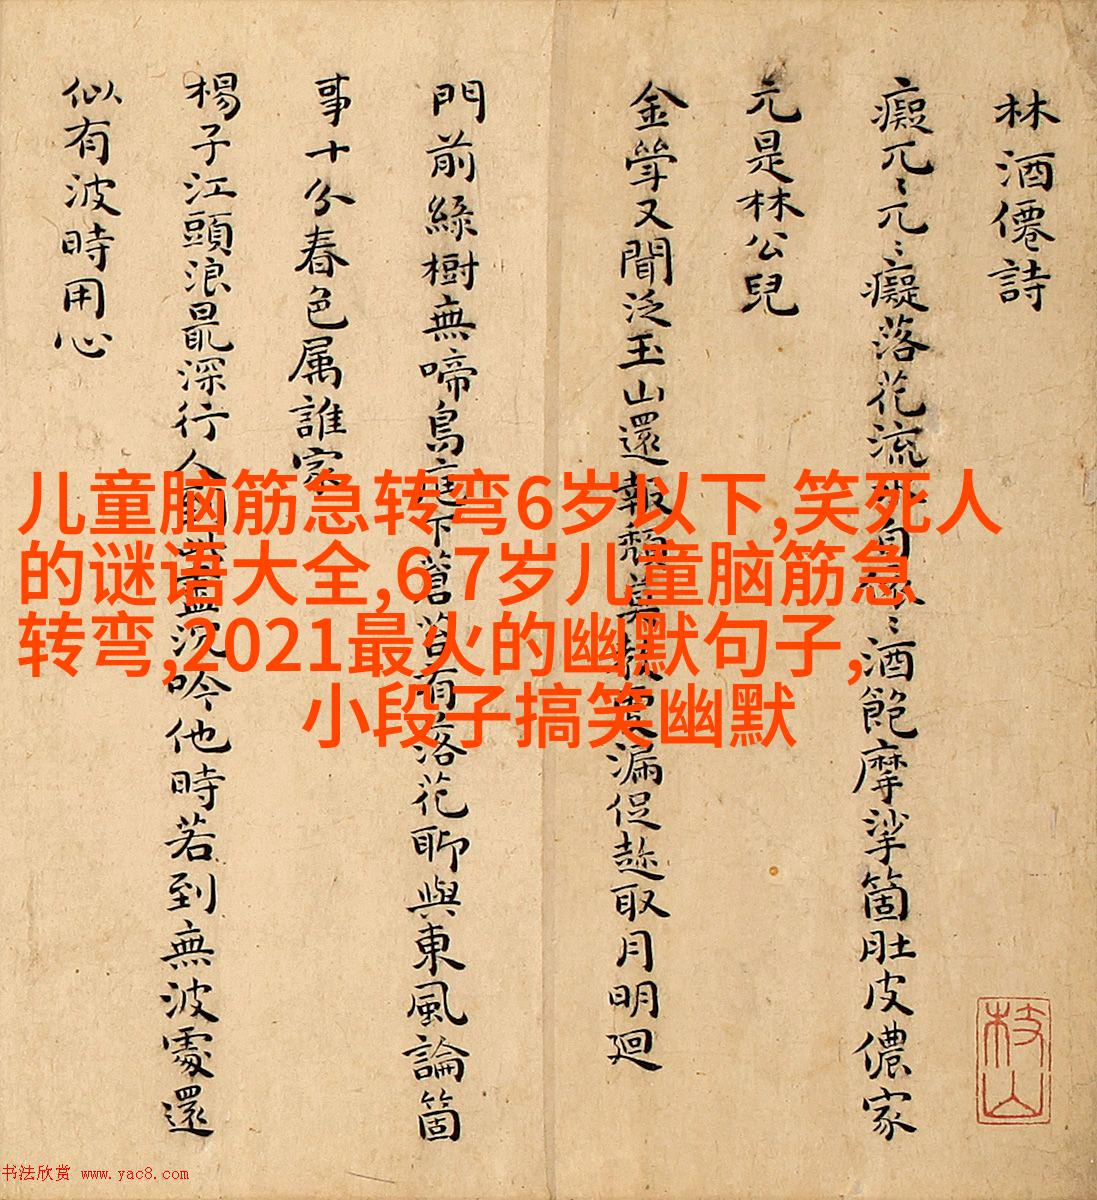 林酒僊詩
癡兀〻兀〻癡落花流自〻酒飽摩挲箇肚皮儂家
元是林公兒
金斝又聞泛玉山還報頹莫教更漏促趂取月明廻
門前綠樹無啼鳥庭下蒼苔有落花聊與東風論箇
事十分春色属誰家
楊子江頭浪最深行人盡沉吟他時若到無波處還
似有波時用心
枝山
儿童脑筋急转弯6岁以下,笑死人
的谜语大全,6 7岁儿童脑筋急
转弯,2021最火的幽默句子,
小段子搞笑幽默
书法欣赏 www.yac8.com